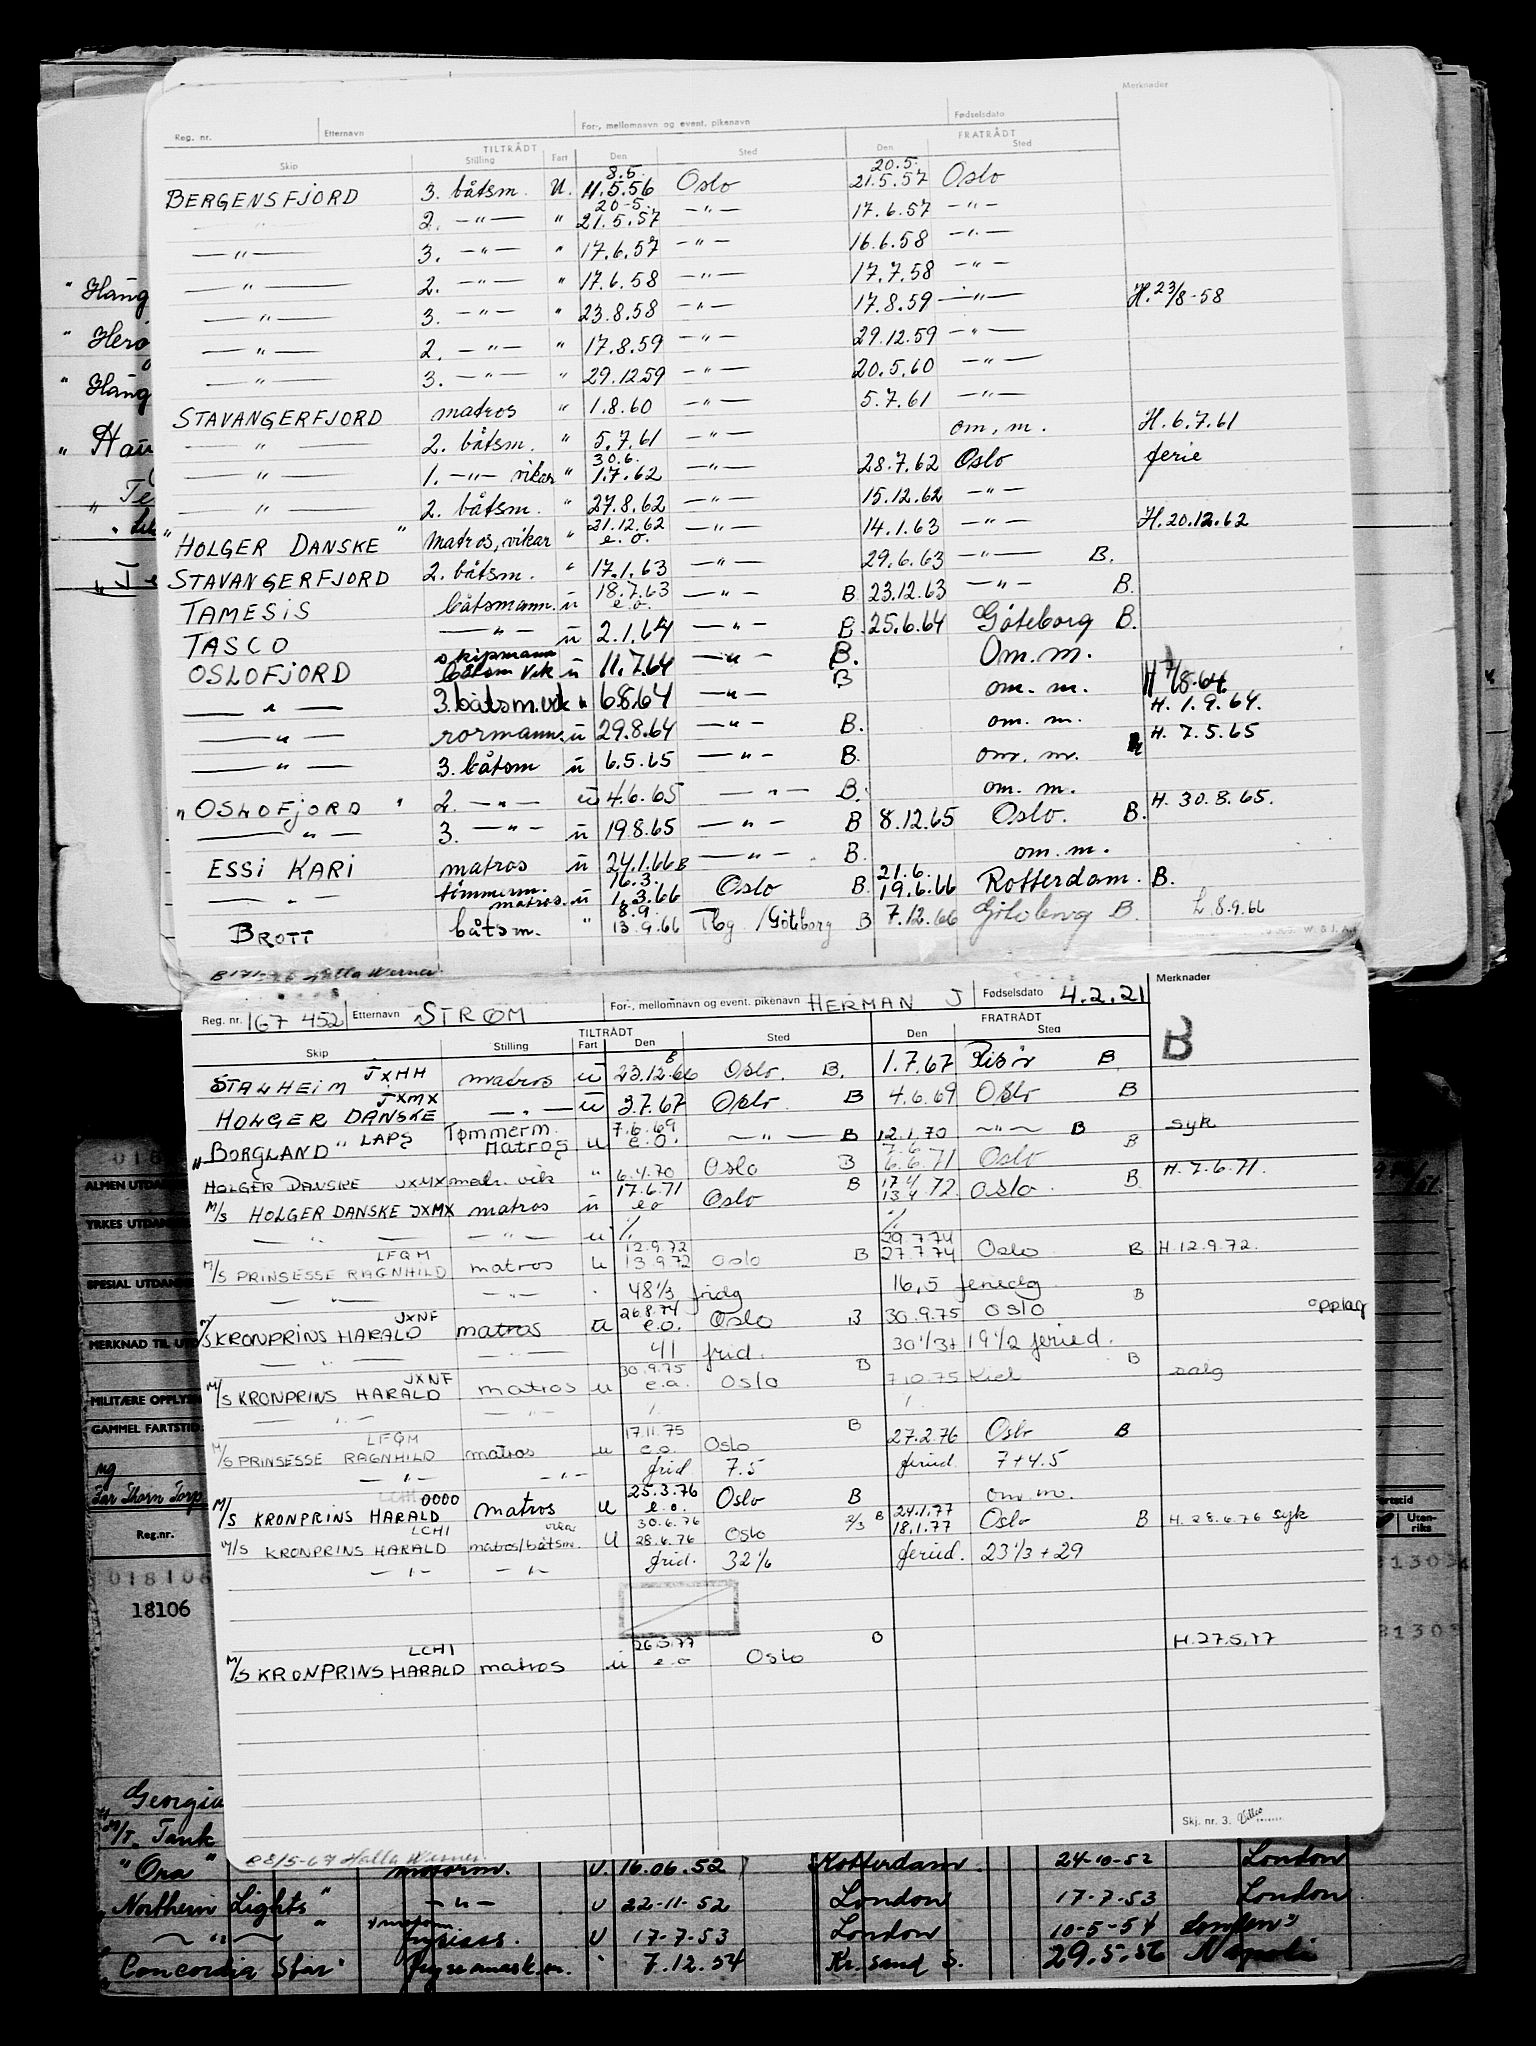 Merknader
Reg. nr. Etternavn For-, mellomnavn og event. pikenavn Fødselsdato
TILTRÅDT FRATRÅDT
Skip Stilling Fart Den Sted Den Sted
8.5. 20.5.
BERGENSFJORD 3. båtsm. U. 11.5.56 Oslo 21.5.57 Oslo
20-5.
2. —"— " 21.5.57 —"— 17.6.57 —"—
—"— 3. —"— " 17.6.57 —"— 16.6.58 —"—
—"— 2. —"— " 17.6.58 —"— 17.7.58 —"—
—"— 3. —"— " 23.8.58 —"— 17.8.59 —"— H. 23/8-58
—"— 2. —"— " 17.8.59 —"— 29.12.59 —"—
—"— 3. —"— " 29.12.59 —"— 20.5.60 —"—
STAVANGERFJORD matros " 1.8.60 —"— 5.7.61 —"—
—"— 2. båtsm. " 5.7.61 —"— om. m. H. 6.7.61
30.6.
—"— 1. —"— vikar " 1.7.62 —"— 28.7.62 Oslo ferie
—"— 2. båtsm. " 27.8.62 —"— 15.12.62 —"—
21.12.62
"HOLGER DANSKE" matros, vikar " e.o. —"— 14.1.63 —"— H. 20.12.62
STAVANGERFJORD 2. båtsm. " 17.1.63 —"— 29.6.63 —"— B.
18.7.63
TAMESIS båtsmann. u e.o. —"— B 23.12.63 —"— B.
TASCO —"— u 2.1.64 —"— B. 25.6.64 Göteborg B.
skipmann
OSLOFJORD båtsm vik u 11.7.64 —"— B. Om. m.
—"— 3. båtsm. vik " 6.8.64 —"— B om. m. H 7/8.64
—"— rormann. u 29.8.64 —"— B. om. m. H. 1.9.64.
—"— 3. båtsm u 6.5.65 —"— B. om. m. H. 7.5.65
"OSLOFJORD" 2. —"— u 4.6.65 —"— B. om. m.
—"— 3. —"— u 19.8.65 —"— B 8.12.65 Oslo. B. H. 30.8.65.
ESSI KARI matros u 24.1.66 B —"— B. om. m.
tømmerm. 16.3. 21.6.
—"— matros. u 1.3.66 Oslo B. 19.6.66 Rotterdam. B.
8.9.
BROTT båtsm. " 13.9.66 Tbg /Göteborg B 7.12.66 Göteborg B. L 8.9.66
Halla Werner
Reg. nr. 167 452 Etternavn STRØM For-, mellomnavn og event. pikenavn HERMAN J Fødselsdato 4.2.21 Merknader
TILTRÅDT FRATRÅDT
Skip Stilling Fart Den Sted Den Sted
B
STALHEIM JXHH matros u 23.12.66 Oslo. B. 1.7.67 Risør B
JXMX
HOLGER DANSKE —"— u 3.7.67 Oslo B 4.6.69 Oslo B
Tømmerm. 7.6.69
"BORGLAND" LAPS Matros u e.o. —"— B 12.1.70 —"— B syk
7.6.
HOLGER DANSKE JXMX matr. vik " 6.4.70 Oslo B 6.6.71 Oslo B
17.6.71 17/4
M/S HOLGER DANSKE JXMX matros u e.o Oslo B 13.4.72 Oslo B H. 7.6.71.
—"— —"— u /. /.
LFQM 12.9.72 29.7.74
M/S PRINSESSE RAGNHILD matros u 13.9.72 Oslo B 27.7.74 Oslo B H. 12.9.72.
—"— —"— 48 1/3 fridg 16,5 feriedg
JXNF 26.8.74
M/S KRONPRINS HARALD matros u e.o. Oslo B 30.9.75 Oslo B opplag
—"— —"— 41 frid. 30 1/3+ 19 1/2 feried.
JXNF 30.9.75
M/S KRONPRINS HARALD matros u e.o. Oslo B 7.10.75 Kiel B salg
—"— —"— /. /.
LFQM 17.11.75
M/S PRINSESSE RAGNHILD matros u e.o. Oslo B 27.2.76 Oslo B
—"— —"— frid 7.5 feried. 7+4.5
0000 25.3.76
M/S KRONPRINS HARALD matros u e.o. Oslo B om. m.
LCHI vikar 30.6.76 24.1.77
M/S KRONPRINS HARALD matros/båtsm. U 28.6.76 Oslo 2/3 B 18.1.77 Oslo B H. 28.6.76 syk
—"— —"— frid. 32 1/6 feried. 23 1/3 + 29
LCHI 26.5.77
M/S KRONPRINS HARALD matros u e.o Oslo B H. 27.5.77
Skj. nr. 3.
Halla Werner
ALMEN UTDAN
YRKES UTDAN
SPESIAL UTDAN
MERKNAD TIL UT
MILITÆRE OPPLYS
GAMMEL FARTSTID
Reg.nr.
018106
18106
Uten-
riks
M/T. Tank
"Ora" motorm. U. 16.06.52 Rotterdam. 24-10-52 London
Northern Lights" —"— U 22-11-52 London 17-7-53 London
—"— U 17-7-53 London 10-5-54 London
"Concordia Star" 7.12.54 Kr.sand S. 29.5.56